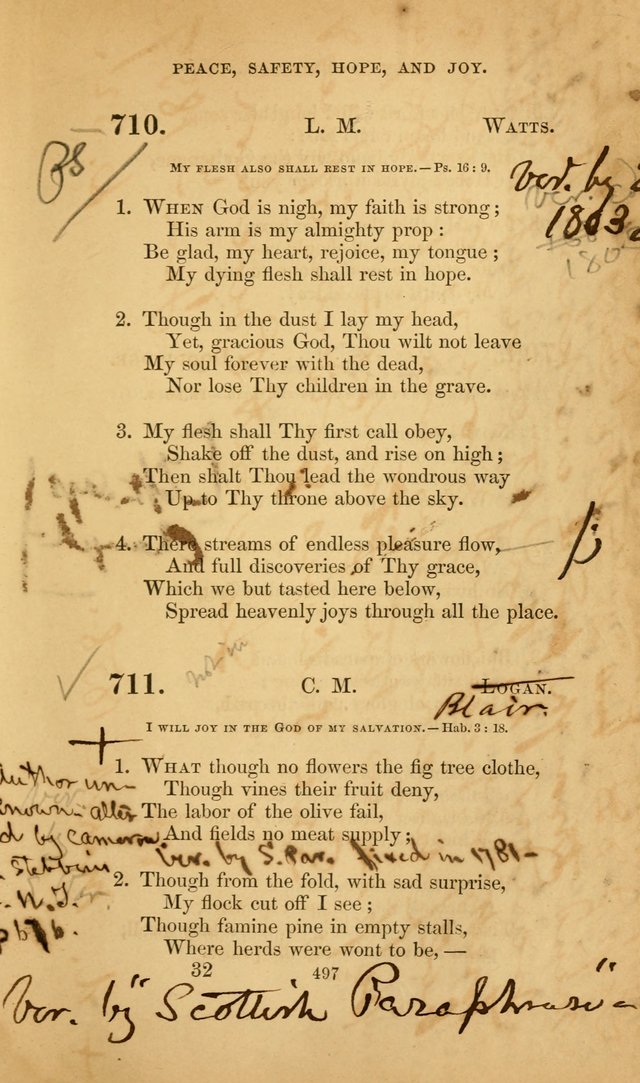 PEACE, SAFETY, HOPE, AND JOY.
710. L. M. WATTS.
MY FLESH ALSO SHALL REST IN HOPE.—Ps. 16 : 9.
Ver. by
1803
180
1. WHEN God is nigh, my faith is strong;
His arm is my almighty prop :
Be glad, my heart, rejoice, my tongue ;
My dying flesh shall rest in hope.
2. Though in the dust I lay my head,
Yet, gracious God, Thou wilt not leave
My soul forever with the dead,
Nor lose Thy children in the grave.
3. My flesh shall Thy first call obey,
Shake off the dust, and rise on high;
Then shalt Thou lead the wondrous way
Up to Thy throne above the sky.
4. There streams of endless pleasure flow,
And full discoveries of Thy grace,
Which we but tasted here below,
Spread heavenly joys through all the place.
not in
711. C. M. LOGAN.
Blair.
I WILL JOY IN THE GOD OF MY SALVATION.—Hab. 3 : 18.
1. WHAT though no flowers the fig tree clothe,
Though vines their fruit deny,
The labor of the olive fail,
And fields no meat supply;
Author un-
known - alter
d by Cameron
Stebbins
Ver. by S. Par. fixed in 1781-
2. Though from the fold, with sad surprise,
My flock cut off I see ;
Though famine pine in empty stalls,
Where herds were wont to be,—
32 497
Ver. by "Scottish Paraphrase"-